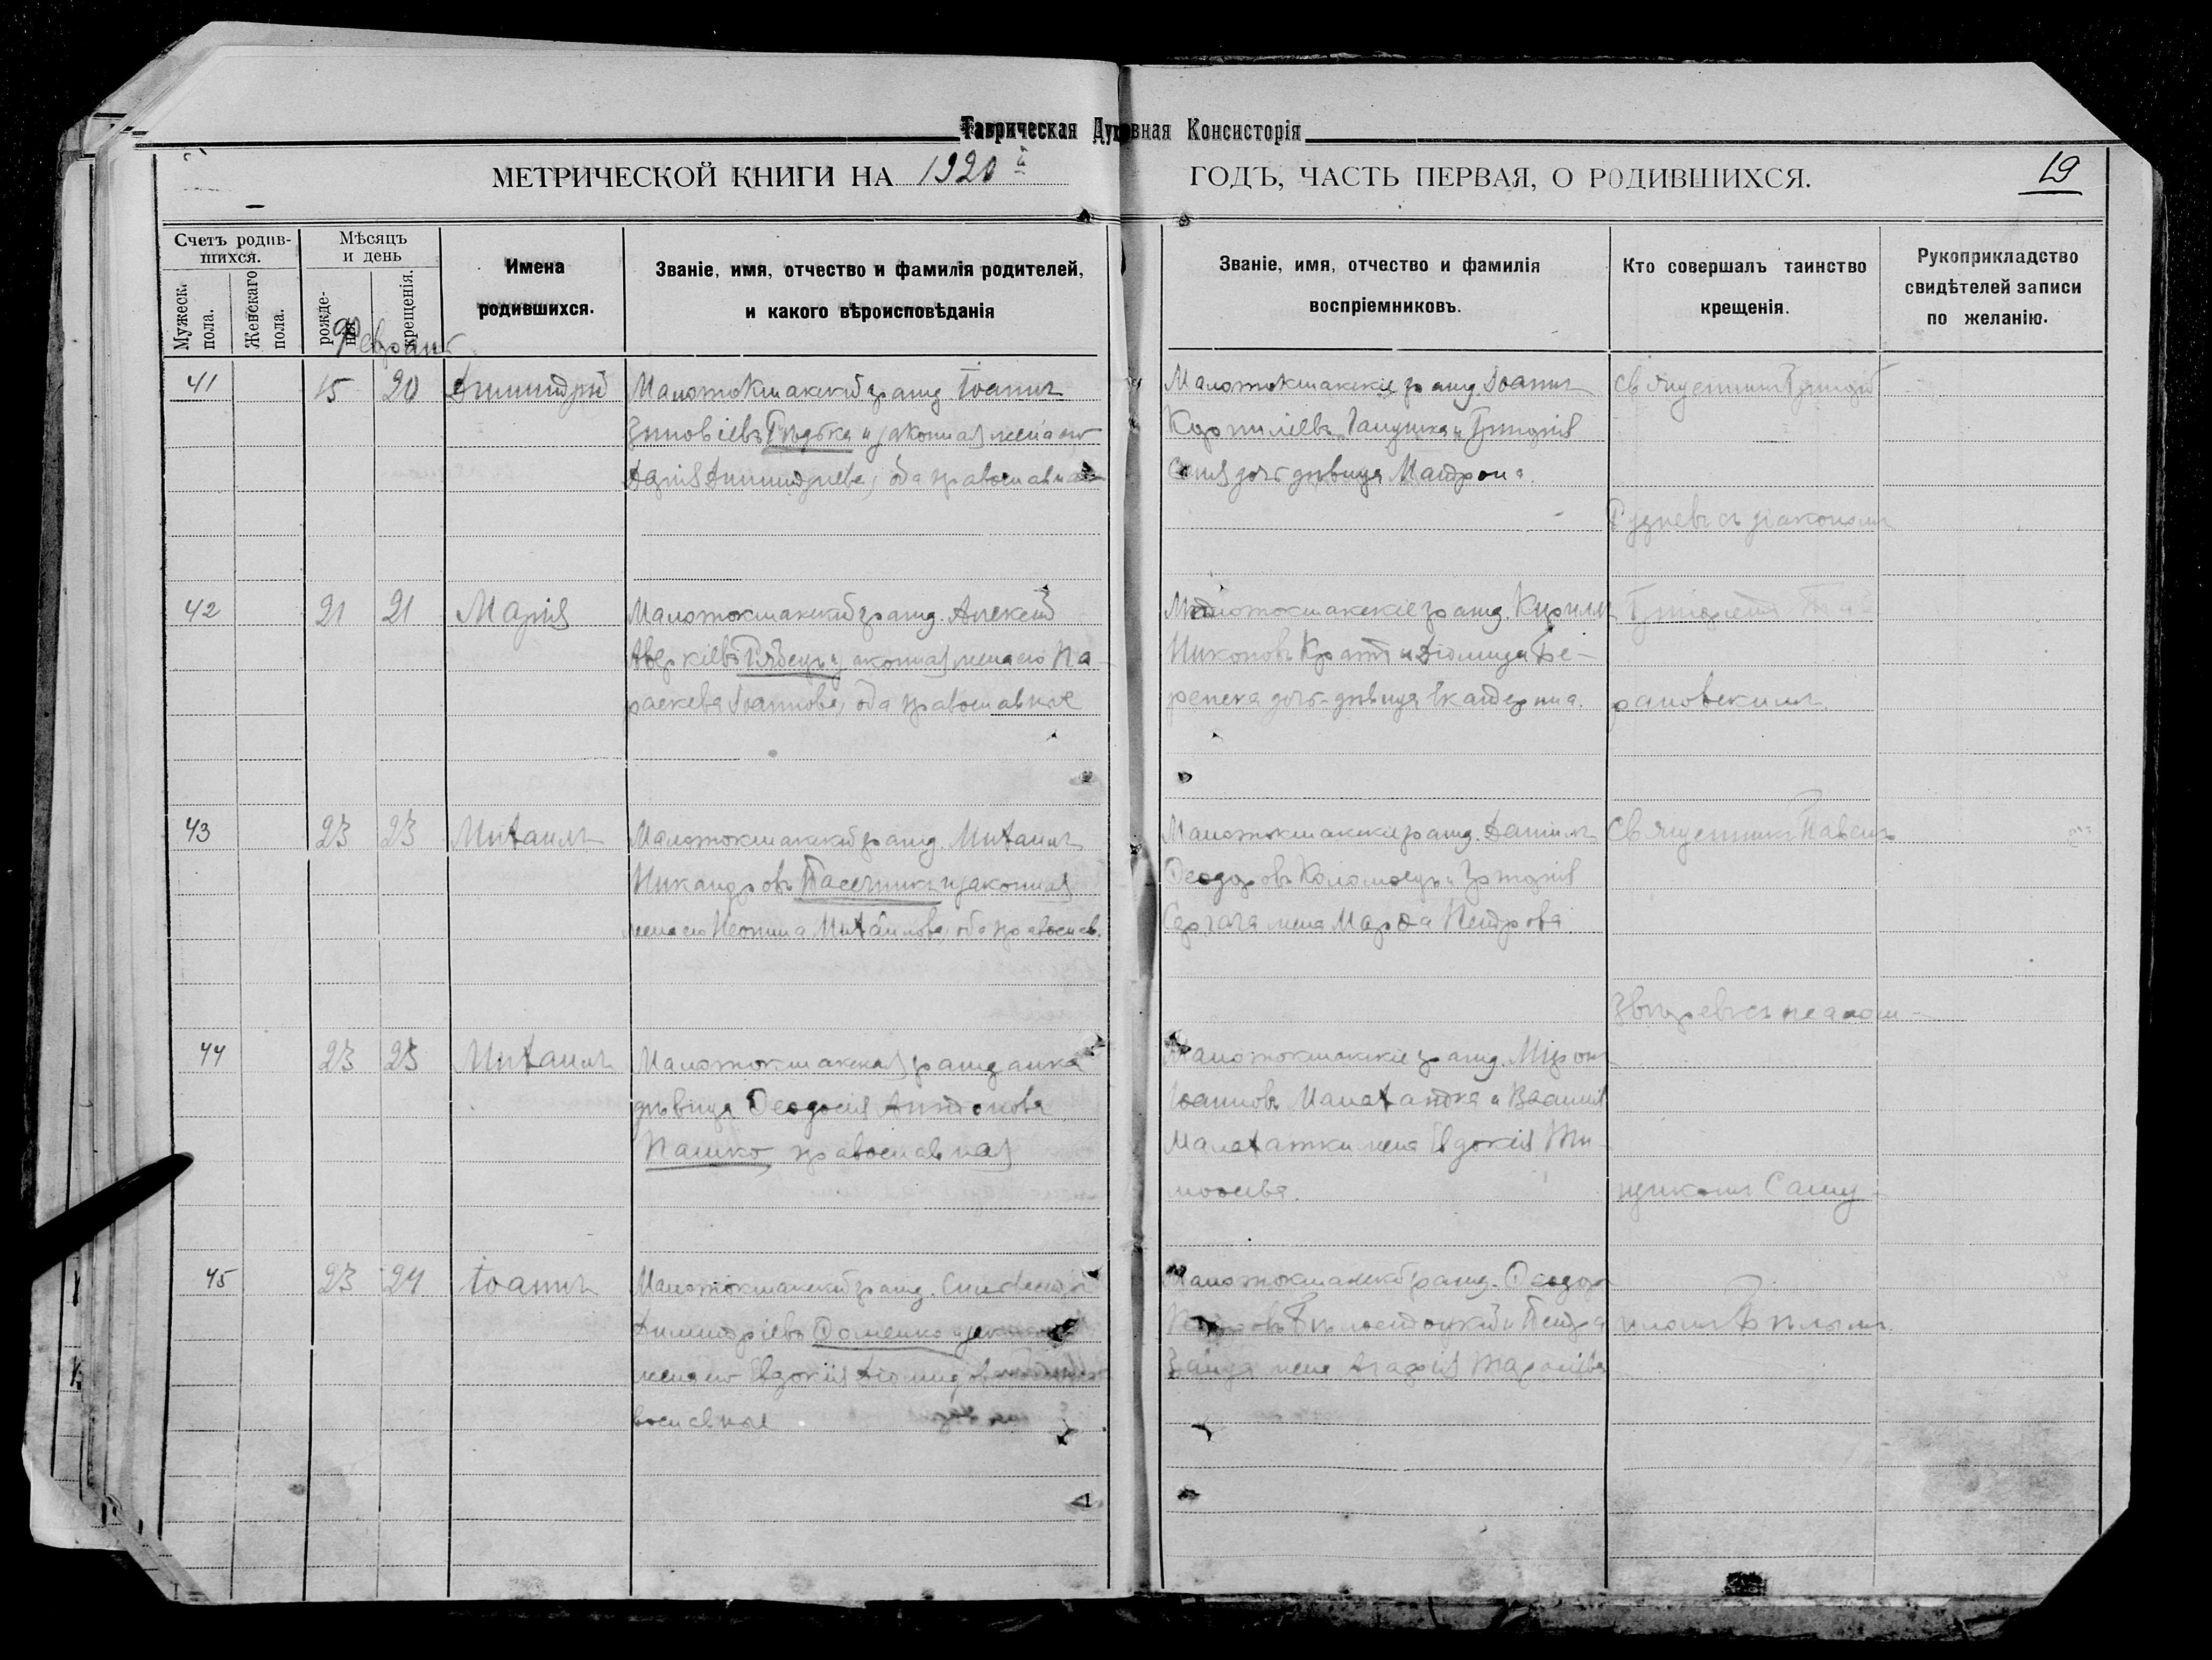 Таврическая Духовная Консисторія
МЕТРИЧЕСКОЙ КНИГИ НА 1920 й ГОДЪ, ЧАСТЬ ПЕРВАЯ, О РОДИВШИХСЯ.
19
Счетъ родив-
шихся.
Мужеск.
пола.
Женскаго
пола.
Мѣсяцъ
и день
рожде-
нія.
крещенія.
Имена
родившихся.
Званіе, имя, отчество и фамилія родителей,
и какого вѣроисповѣданія
Званіе, имя, отчество и фамилія
воспріемниковъ.
Кто совершалъ таинство
крещенія.
Рукоприкладство
свидѣтелей записи
по желанію.
Февраль
41
15
20
Димитрій
Малотокмакскій гражд. Іоаннъ
Зиновіевъ и законная жена его
Дарія Димитріева, оба православные
Малотокмакскіе гражд. Іоаннъ
Корниліевъ Галушка и Григорія
дочь дѣвица Матрона.
Священникъ Григорій
Рудневъ съ діакономъ
42
21
21
Марія
Малотокмакскій гражд. Алексій
Аверкіевъ и законная жена его Па-
раскева Іоаннова, оба православные
Малотокмакскіе гражд. Кириллъ
Никоновъ и Діомида Бе-
дочь-дѣвица Екатерина.
Григоріемъ
рановскимъ.
43
23
23
Михаилъ
Малотокмакскій гражд. Михаилъ
Никандровъ Пасечникъ и законная
жена его Неонила Михаилова, оба православ.
Малотокмакскіе гражд. Даніилъ
Ѳеодоровъ Коломоецъ и Григорія
Сергача жена Марѳа Петрова
Священникъ Павелъ
Звѣревъ съ псалом-
44
23
23
Михаилъ
Малотокмакская гражданка
дѣвица Ѳеодосія Антонова
Пашко, православная
Малотокмакскіе гражд. Миронъ
Іоанновъ Малахатка и Василія
Малахатки жена Евдокія Ти-
моѳеева.
щикомъ Саму-
45
23
24
Іоаннъ
Малотокмакскій гражд. Сильвестръ
Димитріевъ Ѳоменко и законная
жена его Евдокія Діомидова
вославные
Малотокмакскій гражд. Ѳеодоръ
и Петра
жена Агафія
иломъ Бѣлымъ.